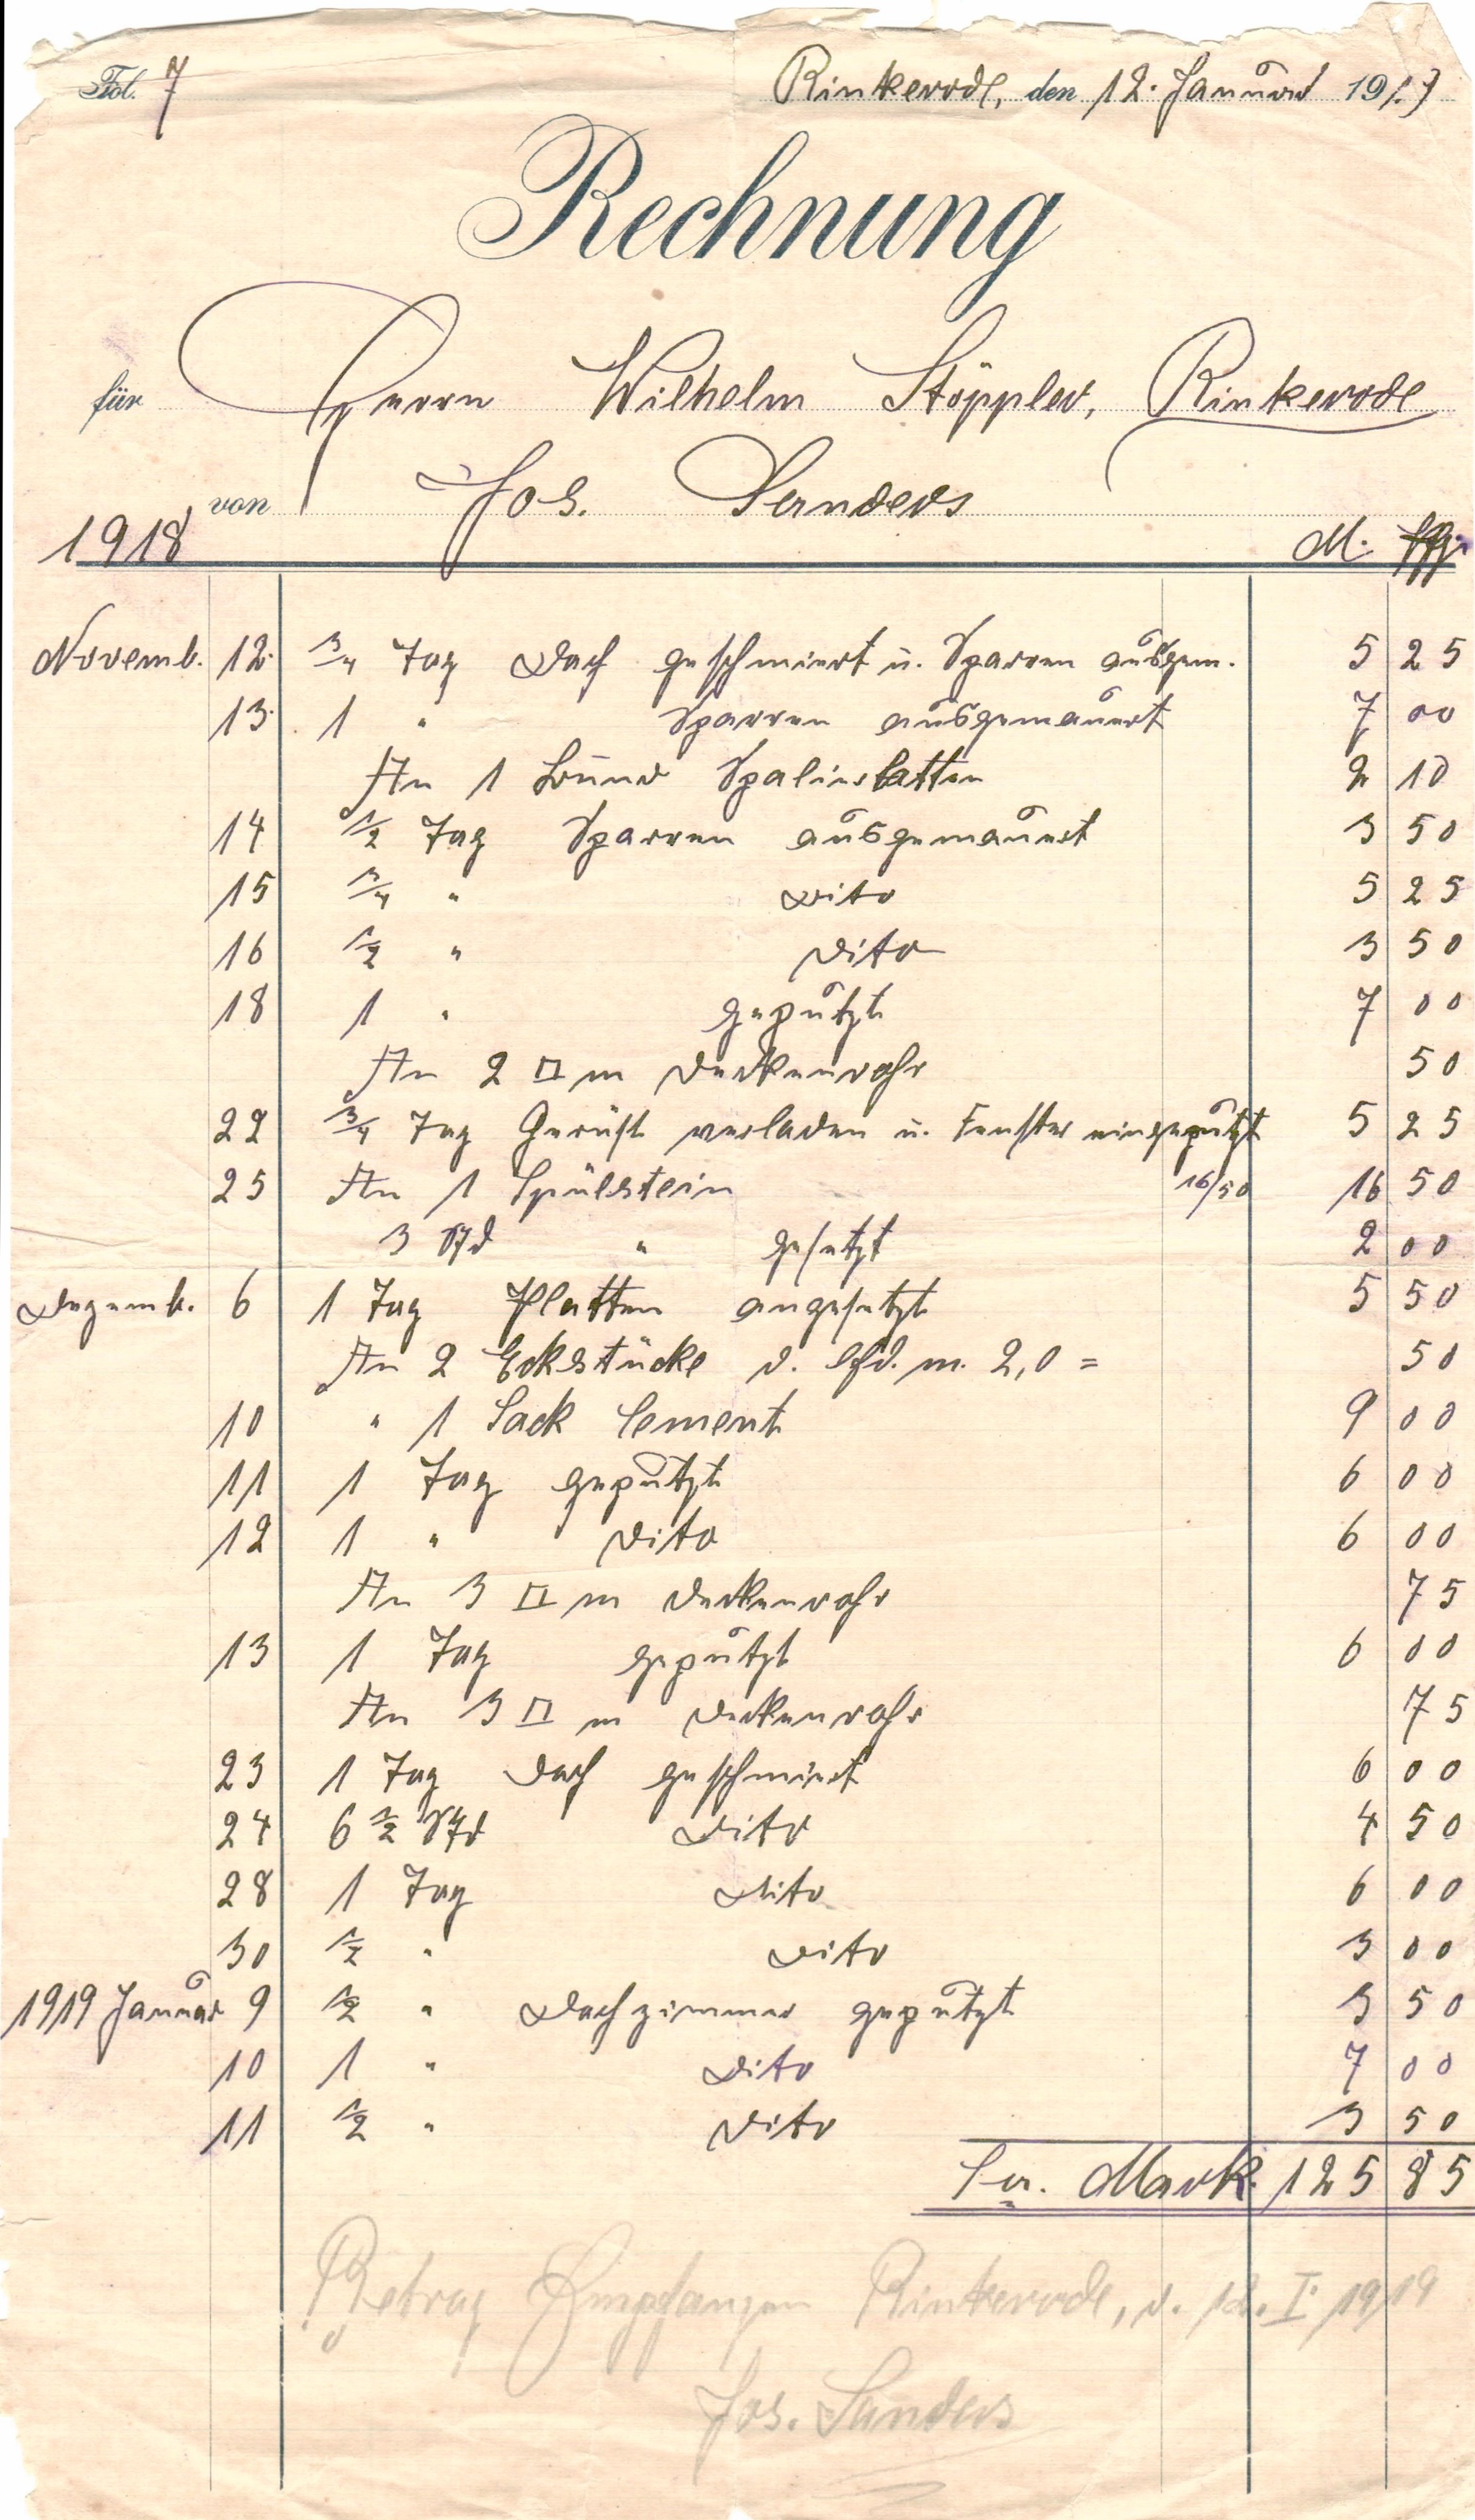 Fol. 7
Rinkerode, den 12. Januar 1919
Rechnung
für Herrn Wilhelm Stöppler, Rinkerode
von Jos. Sanders
1918 M. Pfg.
Novemb. 12. 3/4 Tag Dach geschmiert u. Sparren ausgem. 5 25
13. 1 " Sparren ausgemauert 7 00
An 1 Bund Spalierlatten 2 10
14 1/2 Tag Sparren ausgemauert 3 50
15 3/4 " Dito 5 25
16 1/2 " Dito 3 50
18 1 " geputzt 7 00
An 2 □ m Deckenrohr 50
22 3/4 Tag Gerüst verladen u. Fenster eingeputzt 5 25
25 An 1 Spülstein 16/50 16 50
3 Std " gesetzt 2 00
Dezemb. 6 1 Tag Platten angesetzt 5 50
An 2 Eckstücke d. lfd. m. 2,0 = 50
10 " 1 Sack Cement 9 00
11 1 Tag geputzt 6 00
12 1 " Dito 6 00
An 3 □ m Deckenrohr 75
13 1 Tag geputzt 6 00
An 3 □ m Deckenrohr 75
23 1 Tag Dach geschmiert 6 00
24 6 1/2 Std Dito 4 50
28 1 Tag Dito 6 00
30 1/2 " Dito 3 00
1919 Januar 9 1/2 " Dachzimmer geputzt 3 50
10 1 " Dito 7 00
11 1/2 " Dito 3 50
Sa. Mark 125 85
Betrag Empfangen Rinkerode, d. 12. I. 1919
Jos. Sanders